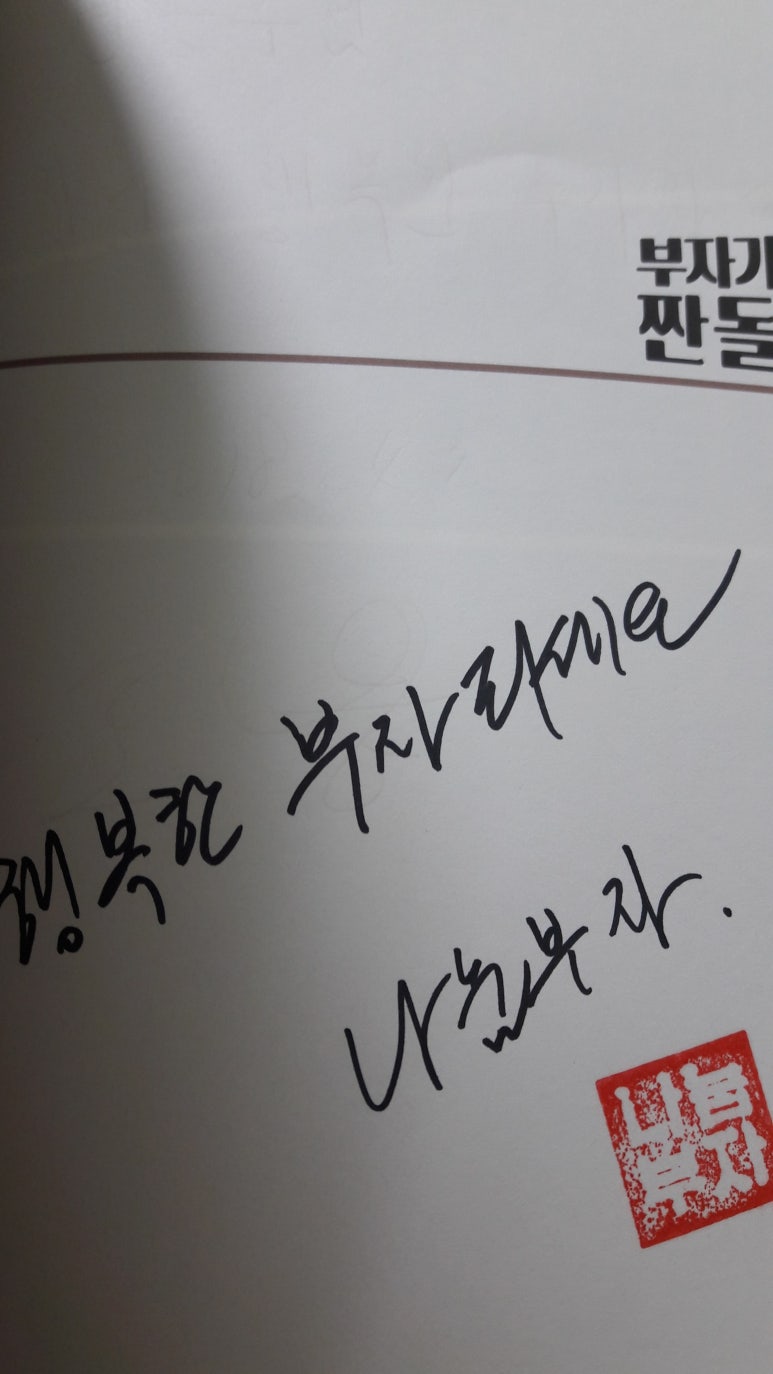 부자가
짠돌
행복한 부자 되세요
나눔부자.
나눔
부자